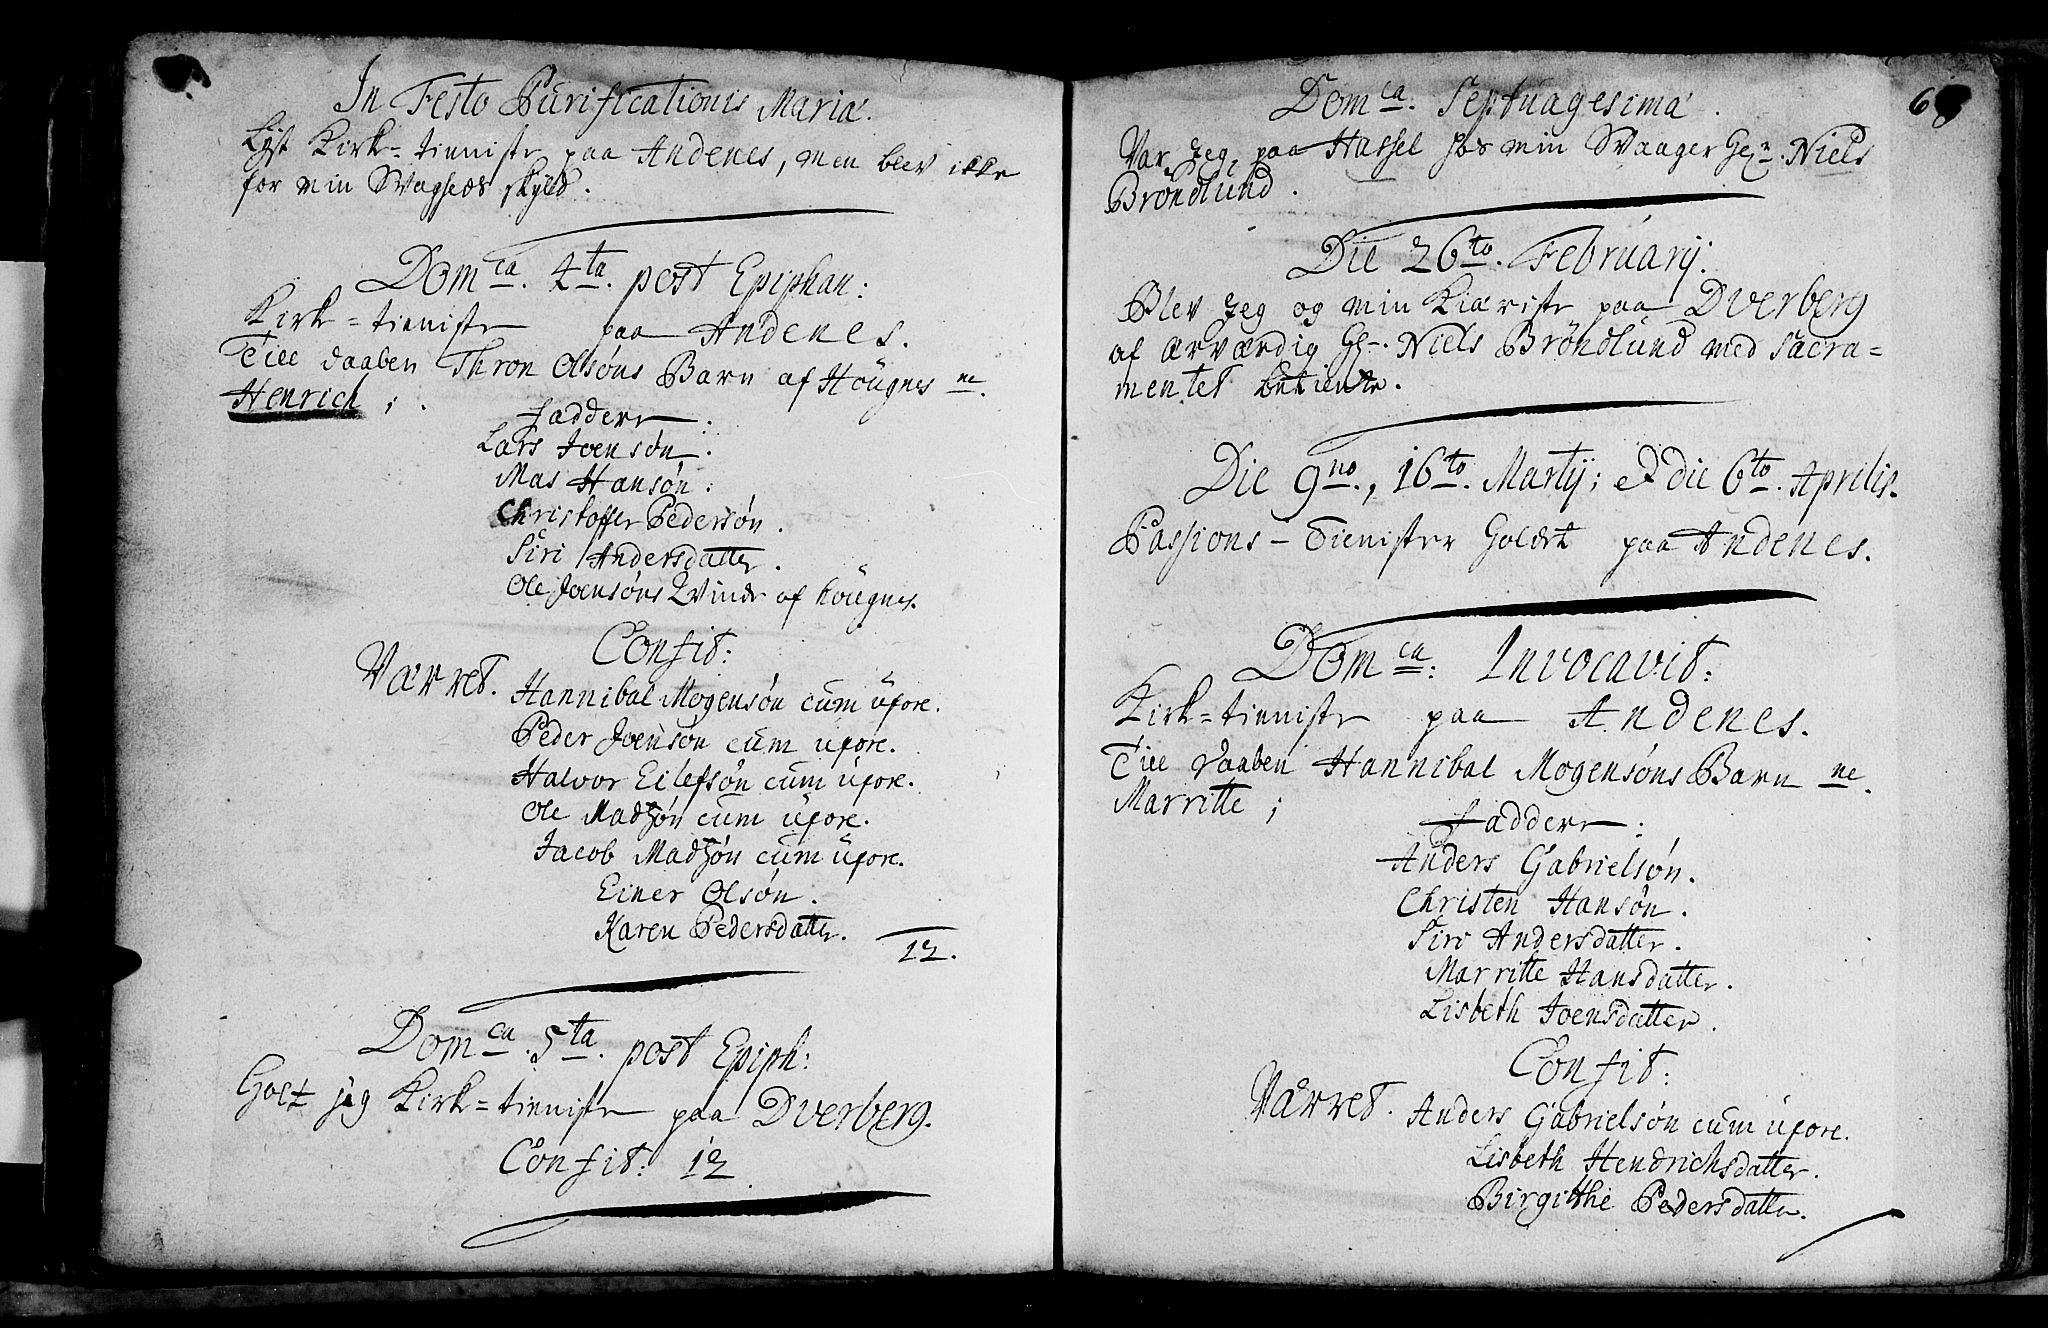 In Festo Purificationis Mariæ.
Lyst Kirke=tieniste paa Andenes, men blev icke
for min Svagheds skyld.
Dom:ca 4ta post Epiphan:
Kirke=tieniste paa Andenes.
Till daaben Thron Olsøns Barn af Hougnes ne.
Henrich;
Faddere:
Lars Joensøn.
Mas Hansøn.
Christoffer Pedersøn.
Siri Andersdatter.
Ole Joensøns Qvinde af hougnes.
Confit:
Værret. Hannibal Mogensøn cum uxore.
Peder Joensøn cum uxore.
Halvor Eilefsøn cum uxore.
Ole Madsøn cum uxore.
Jacob Madsøn cum uxore.
Einer Olsøn.
Karen Pedersdatter.
12.
Dom:ca 5ta post Epiph:
Holt jeg Kirke=tieniste paa Dverberg.
Confit: 12
6
Dom:ca Septuagesima.
Var Jeg paa Hassel hos min Svaager Hr. Niels
Bröndlund.
Die 26to. Februarij.
Blev Jeg og min Kiæriste paa Dverberg
af ærværdig Hr. Niels Bröndlund med Sacra=
mentet betiente.
Die 9no., 16to. Martij; et die 6to. Aprilis.
Passions-Tienister holdet paa Andenes.
Dom:ca Invocavit:
Kirke=tieniste paa Andenes.
Till daaben Hannibal Mogensøns Barn ne.
Marritte;
Faddere:
Anders Gabrielsøn.
Christen Hansøn.
Siri Andersdatter.
Marritte Hansdatter.
Lisbeth Joensdatter.
Confit:
Værret. Anders Gabrielsøn cum uxore.
Lisbeth Hendrichsdatter.
Birgitthe Pedersdatter.